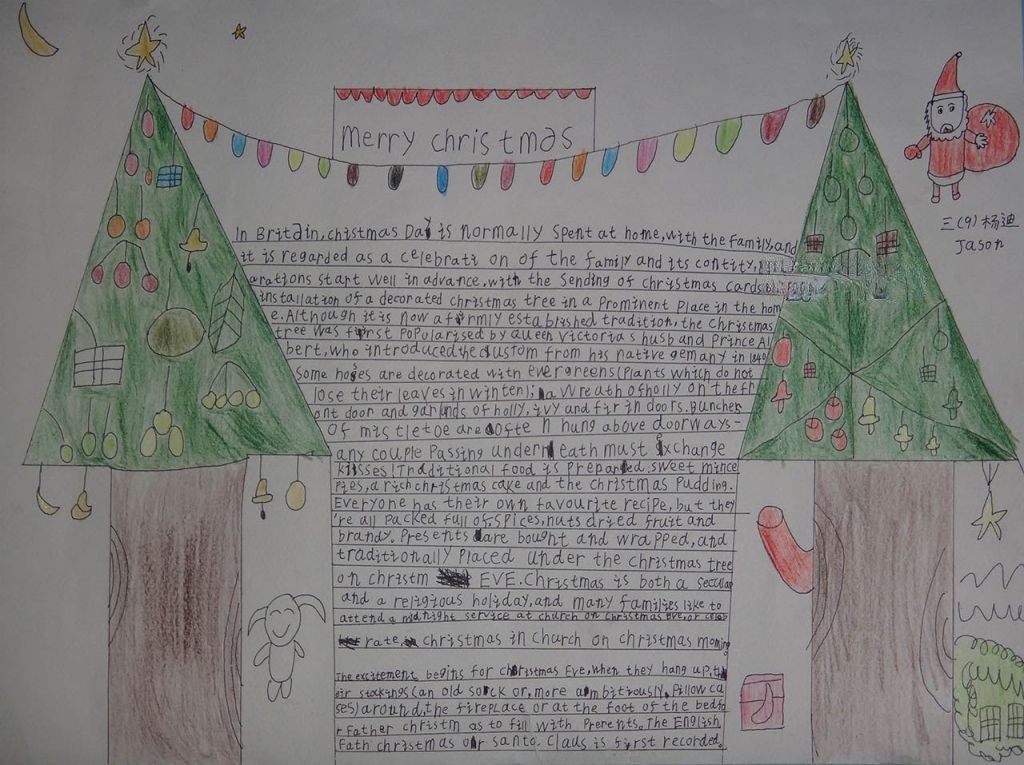 merry christmas
三(9) 杨迪
Jason
In Britain, christmas Day is normally spent at home, with the family, and
it is regarded as a celebrati on of the family and its contity,
arations start well in advance, with the sending of christmas cards
installation of a decorated christmas tree in a prominent place in the hom
e. Although it is now a firmly established tradition, the christmas
tree was first popularised by Queen Victoria's husb and Prince Al
bert, who introduced the custom from his native gemany in 1840
some hoses are decorated with evergreens (plants which do not
lose their leaves in winter); a wreath of holly on the fr
ont door and garlands of holly, ivy and fir indoors. Bunches
of mistletoe are ofte n hung above doorways-
any couple passing undern eath must exchange
kisses! Traditional food is prepared. sweet mince
pies, a rich christmas cake and the christmas pudding.
Everyone has their own favourite recipe, but they
're all packed full of spices, nuts dried fruit and
brandy. Presents are bought and wrapped, and
traditionally placed under the christmas tree
on christm EVE. Christmas is both a secular
and a religious holiday, and many families like to
attend a midnight service at church on christmas eve, or celeb
rate christmas in church on christmas morning
The excitement begins for christmas Eve, when they hang up, th
eir stockings (an old sock or, more ambitiously, pillow ca
ses) around, the fireplace or at the foot of the bed fo
r Father christm as to fill with Prerents. The English
Fath christmas or santa. Claus is first recorded.